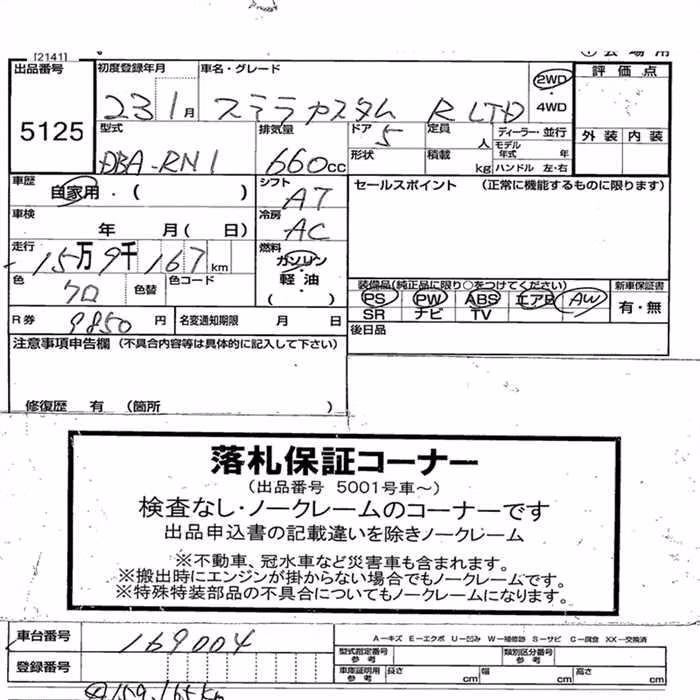 [2141]
出品番号 初度登録年月 車名・グレード 2WD 評価点
5125 23 1月 ステラカスタム R LTD ・4WD
外装 内装
型式 排気量 ドア 定員 ディーラー・並行
DBA-RN1 660cc 5 人 モデル年式 年
形状 積載 kg ハンドル 左・右
車歴 自家用・( ) シフト AT セールスポイント (正常に機能するものに限ります)
車検 年 月( 日) 冷房 AC
走行 15万9千167km 燃料 ガソリン
色 クロ 色替 色コード 軽油 ( ) 装備品(純正品に限り○をつけてください) 新車保証書
PS PW ABS エアB AW 有・無
SR ナビ TV
R券 9850円 名変通知期限 月 日 後日品
注意事項申告欄 (不具合内容等は具体的に記入して下さい)
修復歴 有 (箇所 )
落札保証コーナー
(出品番号 5001号車~)
検査なし・ノークレームのコーナーです
出品申込書の記載違いを除きノークレーム
※不動車、冠水車など災害車も含まれます。
※搬出時にエンジンが掛からない場合でもノークレームです。
※特殊特装部品の不具合についてもノークレームになります。
車台番号 169004 A-キズ E-エクボ U-凹み W-補修跡 S-サビ C-腐食 XX-交換済
型式指定番号 参考 類別区分番号 参考
登録番号 車庫証明用 参考 長さ cm 幅 cm 高さ cm
159,165km